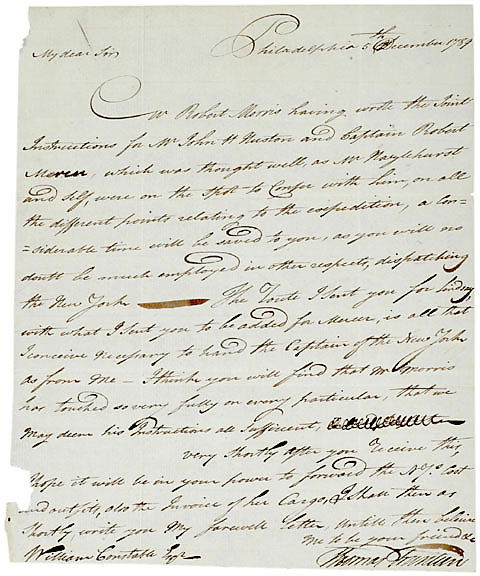 Philadelphia 5th December 1789
My dear Sir
Mr Robert Morris having wrote the Joint
Instructions for Mr John H Huston and Captain Robert
Mercer, which was thought well, as Mr Hazlehurst
and self, were on the spot to Confer with him, on all
the different points relating to the expedition, a con=
=siderable time will be saved to you, as you will no
doubt be much employed in other respects, dispatching
the New York The Route I sent you for Lindsay
with what I sent you to be added for Mercer, is all that
I conceive necessary to hand the Captain of the New York
as from me — I think you will find that Mr Morris
has touched so very fully on every particular, that we
may deem his Instructions all sufficient,
very shortly after you receive this,
I hope it will be in your power to forward the N. Ys Cost
and outfits, also the Invoice of her Cargo, I shall then as
shortly, write you my farewell Letter, untill then believe
me to be your friend &c
William Constable Esqr
Thomas